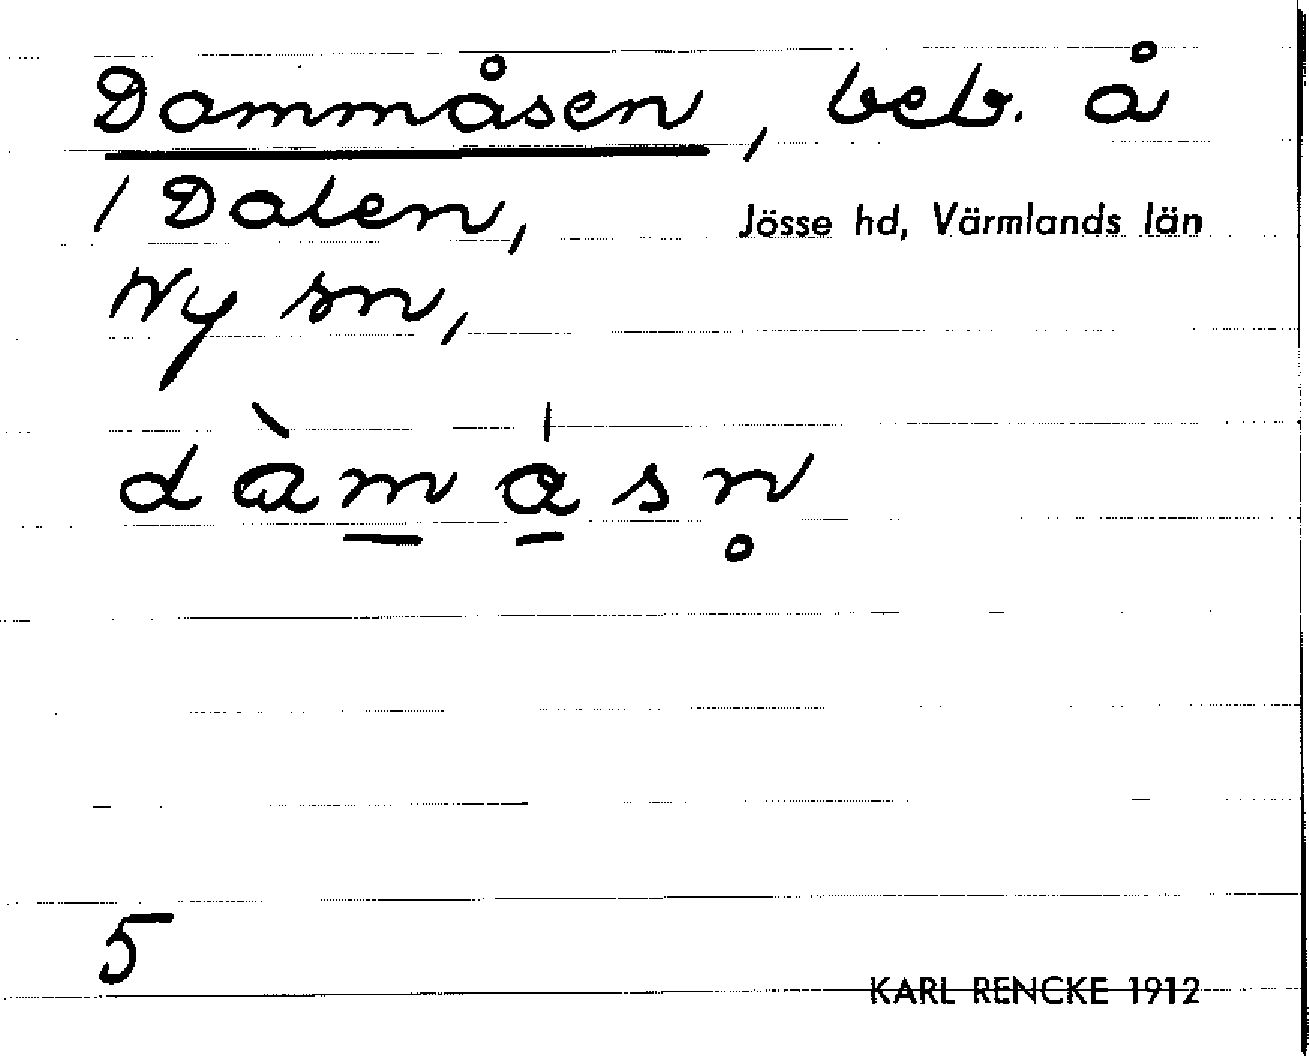 Dammåsen, beb. å
1 Dalen,
Jösse hd, Värmlands län
Ny sn,
dàmåsn̥
5
KARL RENCKE 1912